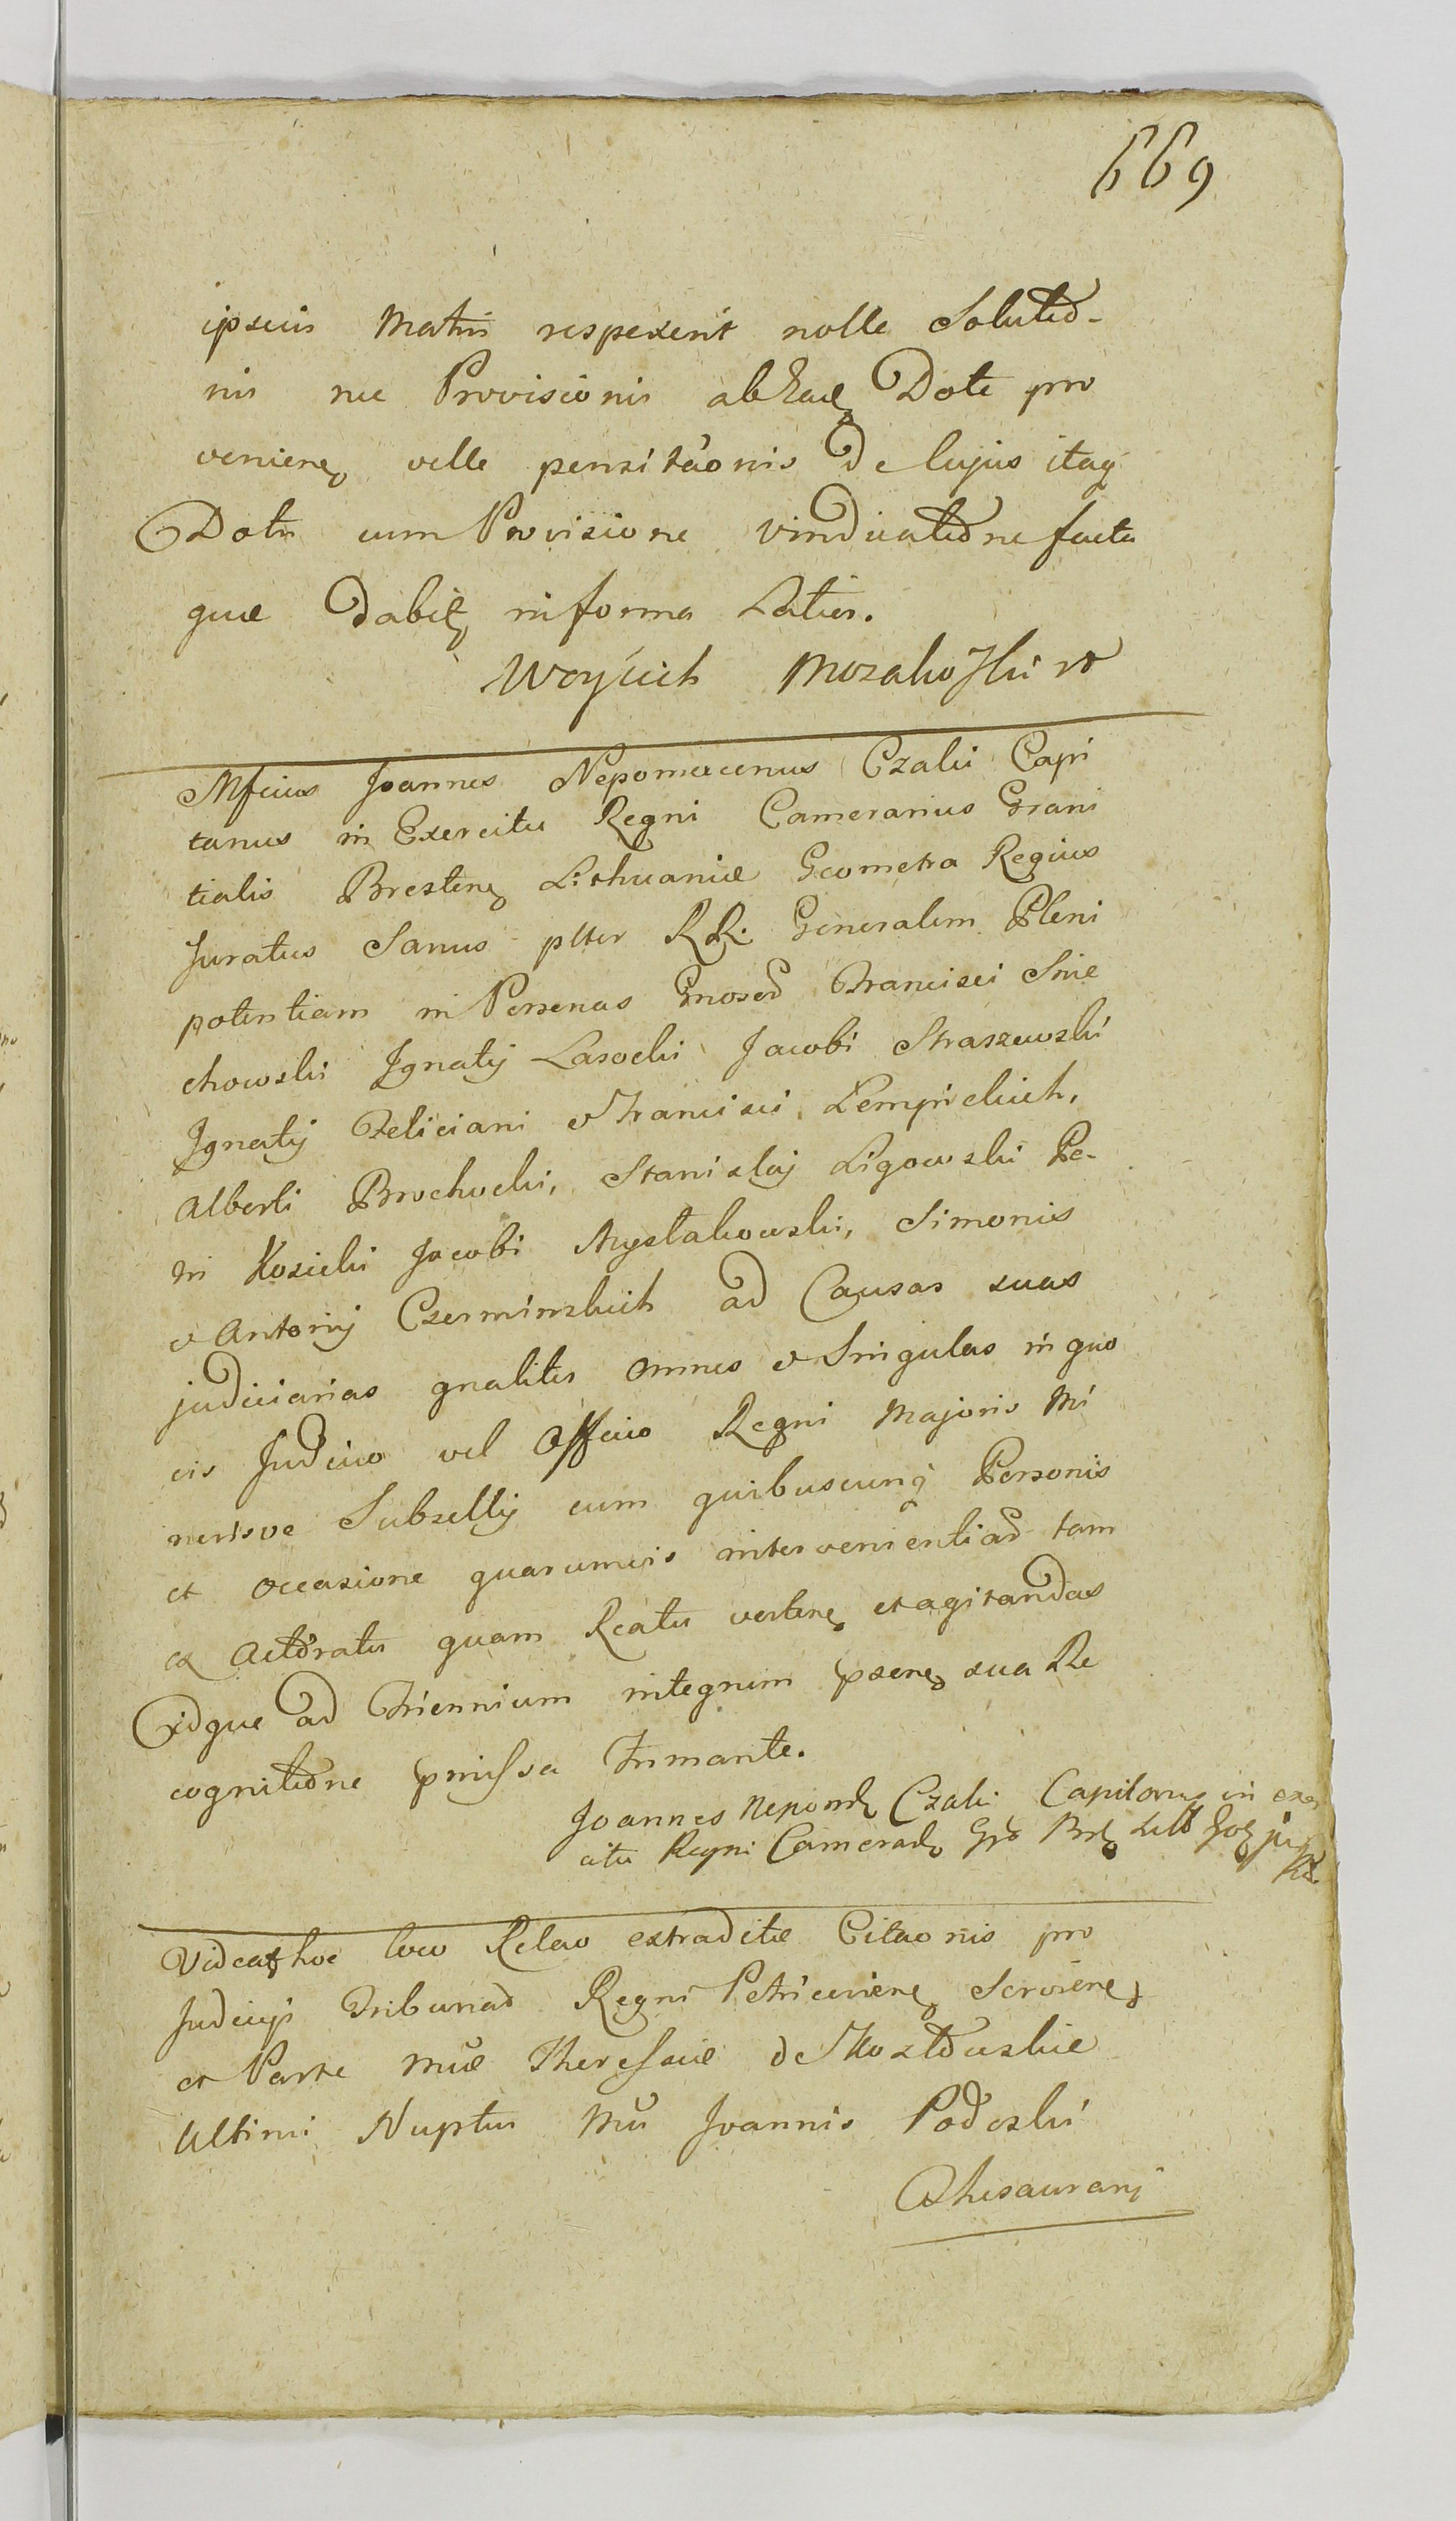 669
ipsius Matris respexerit nolle Solutio-
nis nec Provisionis ab eadem Dote pro
venien velle pensitaonis De cujus itaq
Dotis cum Provisione vindicatione facta
quae Dabit in forma Latior.
Woyciech Mozakoski
Mfcus Joannes Nepomucenus Czaki Capi
taneus in Exercitu Regni Camerarius Grani
tialis Bresten Lithuaniae Geometra Regius
Juratus Sanus plter RR. Generalem Pleni
potentiam in Personas Gnosor Francisci Snie
chowski Ignatij Lasocki Jacobi Straszewski
Ignatij Feliciani et Francisci Lempickich,
Alberti Brochocki, Stanislaj Ligowski Pe-
tri Kosicki Jacobi Mystakowski, Simonis
et Antonij Czerminskich ad Causas suas
judiciarias gnaliter omnes et Singulas in quo
vis Judicio vel Officio Regni Majoris Mi
norisve Subsellij cum quibuscunq Personis
et occasione quarumvis intervenientiar tam
ex Actoratu quam Reatu verten et agitandas
Idque ad Triennium integrum psene sua Re
cognitione pmissa firmante.
Joannes Nepom Czaki Capitaneus in exer
citu Regni Camerar
Videat hoc loco Relao extraditae Citaonis pro
Judicijs Tribunal Regni Petricovien Servien
ex Parte Mcae Theressiae de
Ultimi Nuptus Mci Joannis Podoski
Thesaurarij